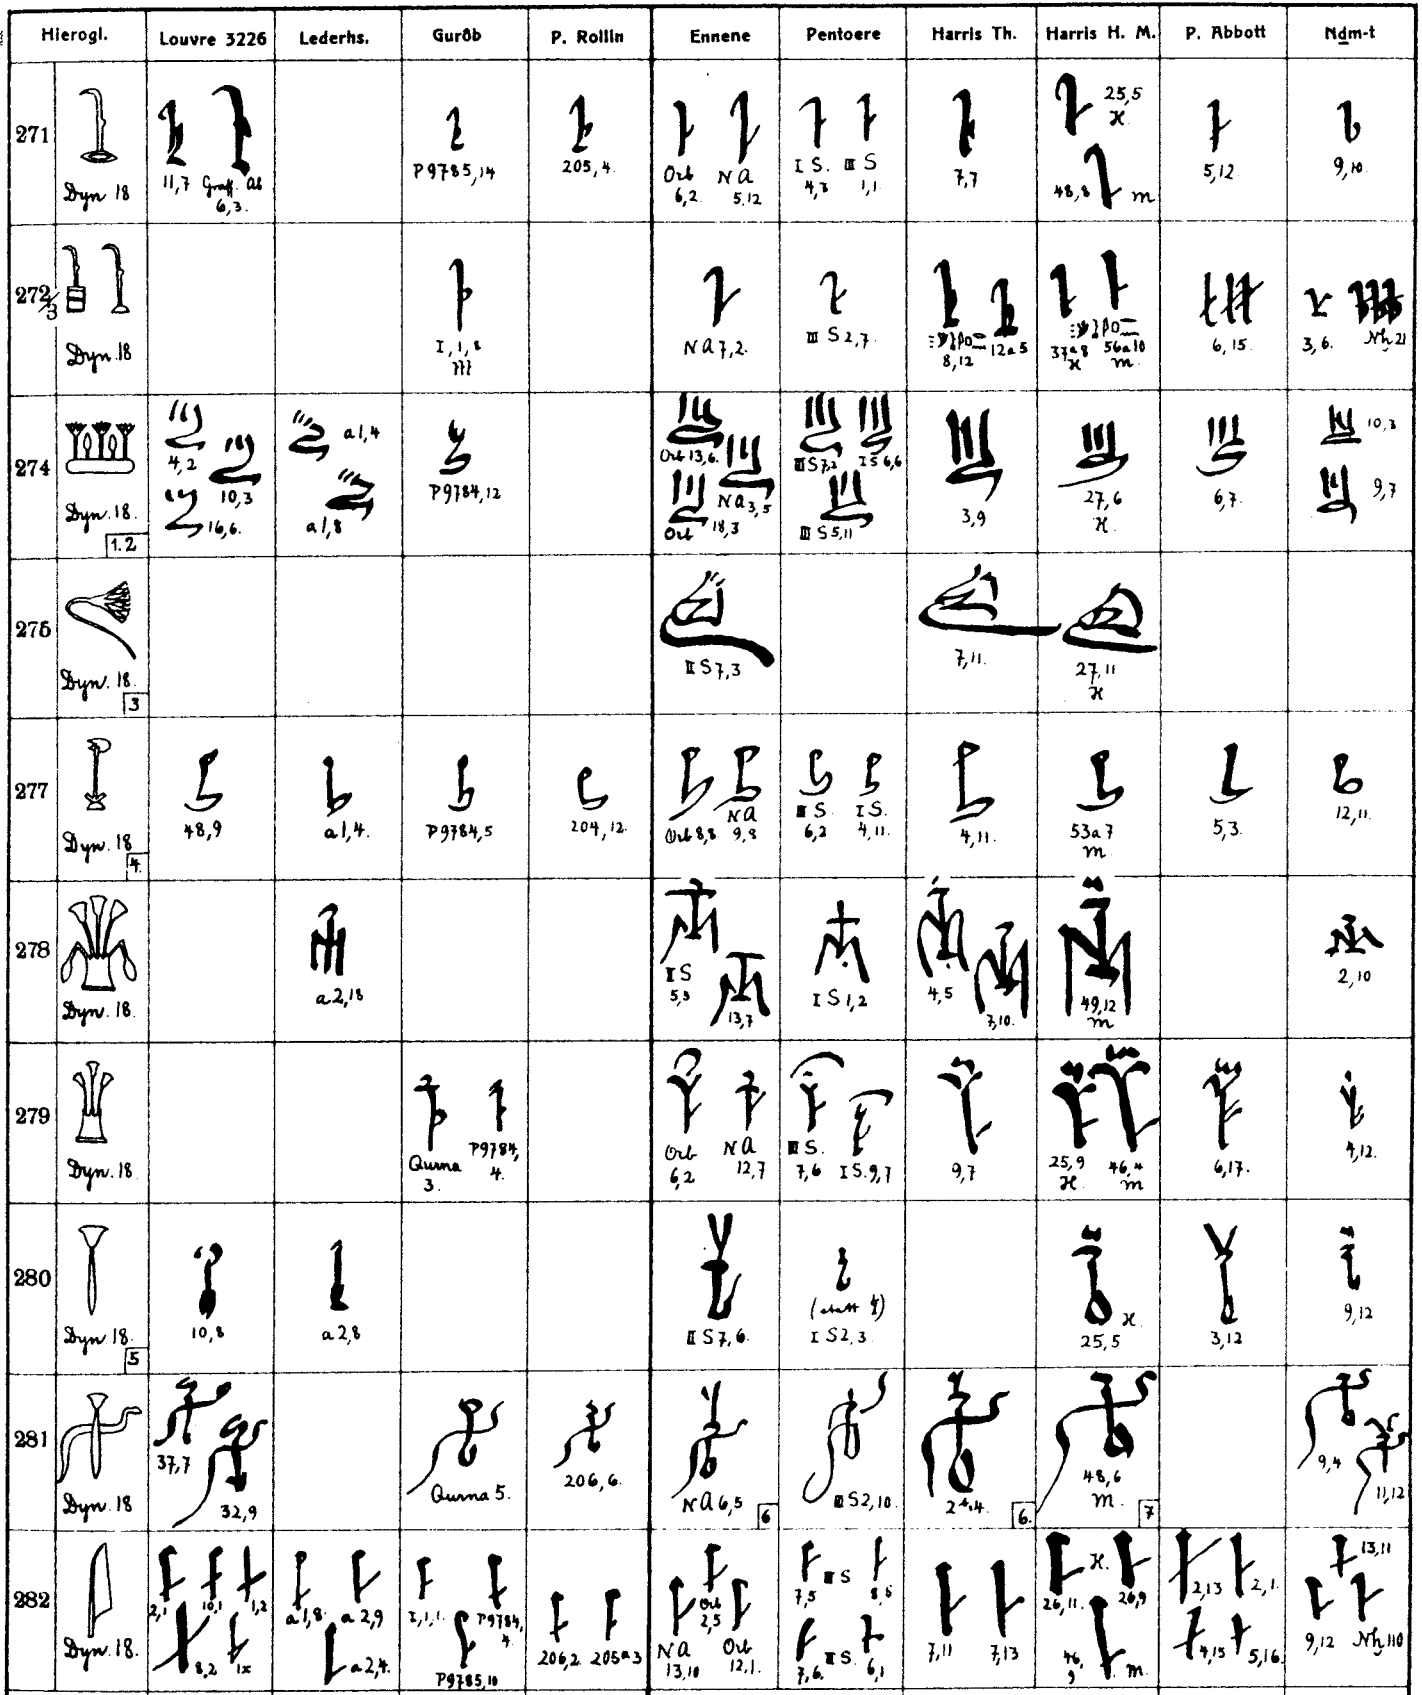 Hierogl. Louvre 3226 Lederhs. Gurôb P. Rollin Ennene Pentoere Harris Th. Harris H. M. P. Abbott Nḏm-t
271
Dyn 18
11,7 Graff. Ab 6,3.
P9785,14
205,4.
Orb 6,2. NA 5,12
I S. 4,3 III S 1,1.
7,7
25,5 H.
48,8 M
5,12.
9,10.
272/3
Dyn. 18
I,1,8
NA7,2.
III S2,7.
8,12 12a5
37a8 H 56a10 M.
6,15.
3,6. Nḫ.21
274
Dyn. 18.
1.2
4,2
10,3
16,6.
a1,4
a1,8
P9784,12
Orb 13,6.
NA3,5
Orb 18,3
III S7,2 I S6,6
III S5,11
3,9
27,6 H.
6,7.
10,3
9,7
275
Dyn. 18.
3
II S7,3
7,11.
27,11 H
277
Dyn. 18
4.
48,9
a1,4.
P9784,5
204,12.
Orb 8,8 NA 9,8
III S. 6,2 I S. 4,11.
4,11.
53a7 M
5,3.
12,11.
278
Dyn. 18.
a2,18
I S 5,3
13,7
I S1,2
4,5
7,10.
49,12 M
2,10
279
Dyn. 18
Qurna 3.
P9784, 4.
Orb 6,2 NA 12,7
III S. 7,6 I S.9,7
9,7
25,9 H. 46,4 M
6,17.
4,12.
280
Dyn 18.
5
10,8
a2,8
II S7,6.
(statt )
I S2,3.
25,5 H.
3,12
9,12
281
Dyn. 18
37,7
32,9
Qurna 5.
206,6.
NA6,5
6
III S2,10.
6.
48,6 M.
7
9,4
11,12
282
Dyn. 18.
2,1 10,1 1,2
8,2 1x
a1,8. a2,9
a2,4.
I,1,1. P9784, 4.
P9785,10
206,2 205a3
Orb 2,5
NA 13,10 Orb 12,1.
7,5 III S 8,6
7,6. III S. 6,1
7,11 7,13
26,11. H. 26,9
46, 9 M.
2,13 2,1.
4,15 5,16.
13,11
9,12 Nḫ110